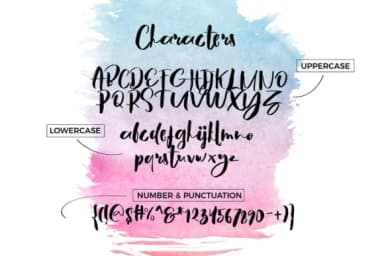 Characters
UPPERCASE
ABCDEFGHIJKLMNO
PQRSTUVWXYZ
LOWERCASE
abcdefghijklmno
pqrstuvwxyz
NUMBER & PUNCTUATION
{[(@$#%^&*1234567890-+)]}